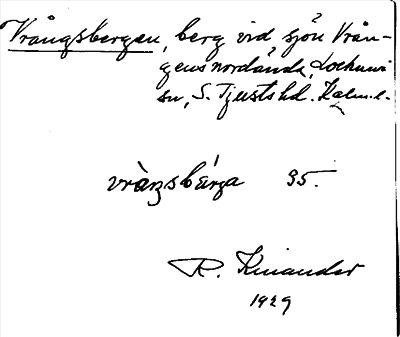 Vrångsbergen, berg vid sjön Vrån-
gens nordända, Locknevi
sn, S. Tjusts hd. Kalm. l.
vràŋsbærga 35.
R. Kinander
1929